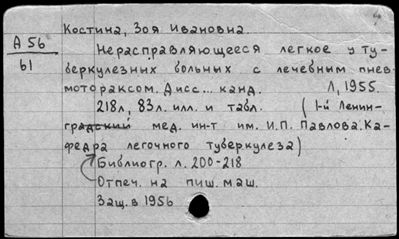 Костина, Зоя Ивановна.
А 56
61
Нерасправляющееся легкое у ту-
беркулезных больных с лечебным пнев-
мотораксом. Дисс... канд. Л, 1955.
218л, 83л. илл. и табл. (1-й Ленин-
градский мед. ин-т им. И.П. Павлова. Ка-
федра легочного туберкулеза)
Библиогр. л. 200-218
Отпеч. на пиш. маш.
Защ. в 1956